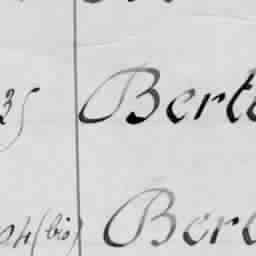 35 Berte
24 (bis) Bere